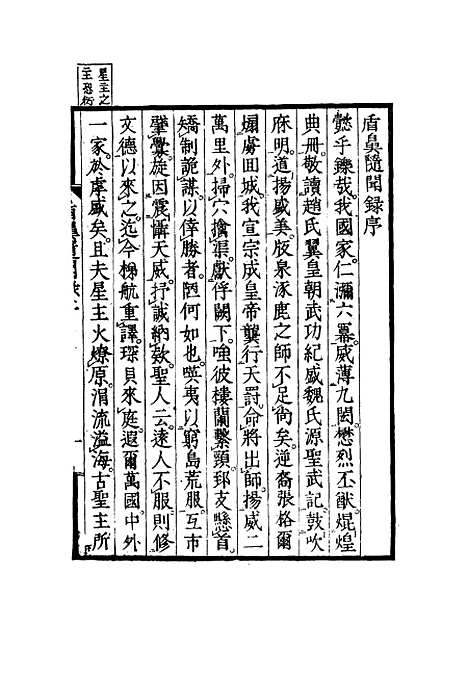 盾鼻隨聞録序
懿乎鑠哉。我國家仁瀰六幕。威薄九閎。懋烈丕猷。焜煌
典冊。敬讀趙氏翼皇朝武功紀盛。魏氏源聖武記。鼓吹
庥明。道揚盛美。阪泉涿鹿之師不足尚矣。逆裔張格爾
煽虐回城。我宣宗成皇帝龔行天罰。命將出師。揚威二
萬里外。掃穴擒渠。獻俘闕下。唯彼樓蘭繫頸。郅支懸首
矯制詭謀。以倖勝者。
何如也。嘆夷以窮島荒服。互市
肇釁。旋因震懾天威。抒誠納欵。聖人云。遠人不服則修
文德以來之。迄今梯航重譯。琛貝來庭。遐爾萬國。中外
一家。於摩盛矣。且夫星主火燎原。涓流溢海。古聖主所
星主之
主恐衍